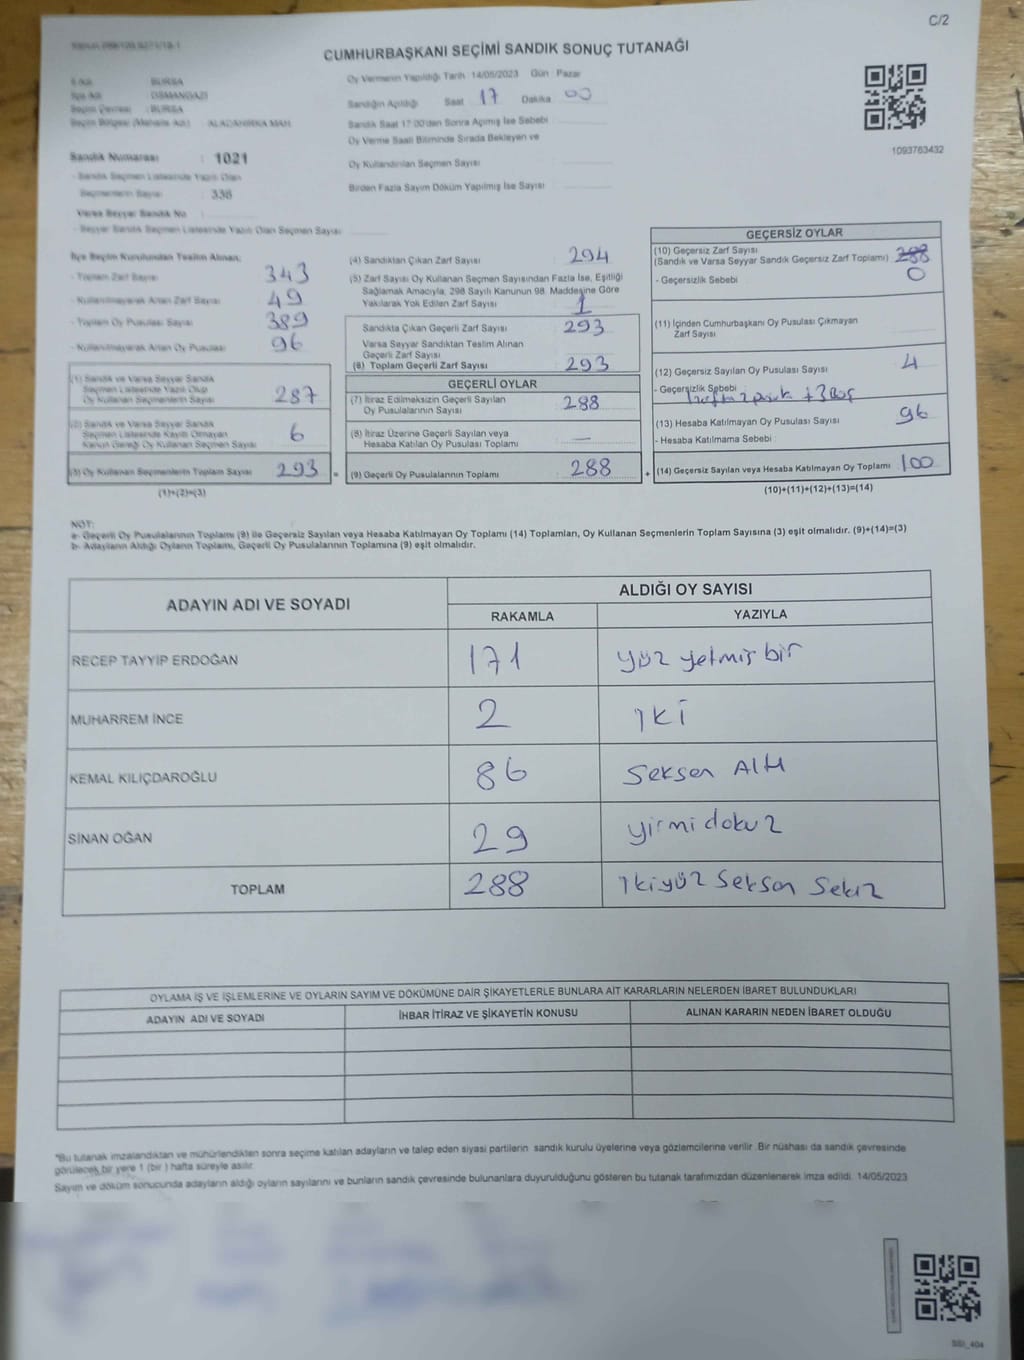 C/2
CUMHURBAŞKANI SEÇİMİ SANDIK SONUÇ TUTANAĞI
BURSA
İlçe Adı : OSMANGAZİ
Seçim Çevresi : BURSA
Seçim Bölgesi (Mahalle Adı) :
Sandık Numarası : 1021
- Sandık Seçmen Listesinde Yazılı Olan
Seçmenlerin Sayısı : 336
Varsa Seyyar Sandık No :
- Seyyar Sandık Seçmen Listesinde Yazılı Olan Seçmen Sayısı :
Oy Vermenin Yapıldığı Tarih 14/05/2023 Gün Pazar
Sandığın Açıldığı Saat 17 Dakika 00
Sandık Saat 17:00'den Sonra Açılmış İse Sebebi
Oy Verme Saati Bitiminde Sırada Bekleyen ve
Oy Kullandırılan Seçmen Sayısı
Birden Fazla Sayım Döküm Yapılmış İse Sayısı
1093763432
İlçe Seçim Kurulundan Teslim Alınan;
- Toplam Zarf Sayısı 343
- Kullanılmayarak Artan Zarf Sayısı 49
- Toplam Oy Pusulası Sayısı 389
- Kullanılmayarak Artan Oy Pusulası 96
(1) Sandık ve Varsa Seyyar Sandık
Seçmen Listesinde Yazılı Olup
Oy Kullanan Seçmenlerin Sayısı 287
(2) Sandık ve Varsa Seyyar Sandık
Seçmen Listesinde Kayıtlı Olmayan
Kanun Gereği Oy Kullanan Seçmen Sayısı 6
(3) Oy Kullanan Seçmenlerin Toplam Sayısı 293 =
(1)+(2)=(3)
(4) Sandıktan Çıkan Zarf Sayısı 294
(5) Zarf Sayısı Oy Kullanan Seçmen Sayısından Fazla İse, Eşitliği
Sağlamak Amacıyla, 298 Sayılı Kanunun 98. Maddesine Göre
Yakılarak Yok Edilen Zarf Sayısı 1
Sandıkta Çıkan Geçerli Zarf Sayısı 293
Varsa Seyyar Sandıktan Teslim Alınan
Geçerli Zarf Sayısı
(6) Toplam Geçerli Zarf Sayısı : 293
GEÇERLİ OYLAR
(7) İtiraz Edilmeksizin Geçerli Sayılan
Oy Pusulalarının Sayısı : 288
(8) İtiraz Üzerine Geçerli Sayılan veya
Hesaba Katılan Oy Pusulaları Toplamı : —
(9) Geçerli Oy Pusulalarının Toplamı : 288 +
GEÇERSİZ OYLAR
(10) Geçersiz Zarf Sayısı
(Sandık ve Varsa Seyyar Sandık Geçersiz Zarf Toplamı) 288
- Geçersizlik Sebebi 0
(11) İçinden Cumhurbaşkanı Oy Pusulası Çıkmayan
Zarf Sayısı
(12) Geçersiz Sayılan Oy Pusulası Sayısı 4
- Geçersizlik Sebebi
(13) Hesaba Katılmayan Oy Pusulası Sayısı 96
- Hesaba Katılmama Sebebi
(14) Geçersiz Sayılan veya Hesaba Katılmayan Oy Toplamı 100
(10)+(11)+(12)+(13)=(14)
NOT:
a- Geçerli Oy Pusulalarının Toplamı (9) ile Geçersiz Sayılan veya Hesaba Katılmayan Oy Toplamı (14) Toplamları, Oy Kullanan Seçmenlerin Toplam Sayısına (3) eşit olmalıdır. (9)+(14)=(3)
b- Adayların Aldığı Oyların Toplamı, Geçerli Oy Pusulalarının Toplamına (9) eşit olmalıdır.
ADAYIN ADI VE SOYADI ALDIĞI OY SAYISI
RAKAMLA YAZIYLA
RECEP TAYYİP ERDOĞAN 171 yüz yetmiş bir
MUHARREM İNCE 2 iki
KEMAL KILIÇDAROĞLU 86 Seksen Altı
SİNAN OĞAN 29 yirmi dokuz
TOPLAM 288 ikiyüz seksen sekiz
OYLAMA İŞ VE İŞLEMLERİNE VE OYLARIN SAYIM VE DÖKÜMÜNE DAİR ŞİKAYETLERLE BUNLARA AİT KARARLARIN NELERDEN İBARET BULUNDUKLARI
ADAYIN ADI VE SOYADI İHBAR İTİRAZ VE ŞİKAYETİN KONUSU ALINAN KARARIN NEDEN İBARET OLDUĞU
*Bu tutanak imzalandıktan ve mühürlendikten sonra seçime katılan adayların ve talep eden siyasi partilerin sandık kurulu üyelerine veya gözlemcilerine verilir. Bir nüshası da sandık çevresinde
görülecek bir yere 1 (bir ) hafta süreyle asılır.
Sayım ve döküm sonucunda adayların aldığı oyların sayılarını ve bunların sandık çevresinde bulunanlara duyurulduğunu gösteren bu tutanak tarafımızdan düzenlenerek imza edildi. 14/05/2023
SSI_404